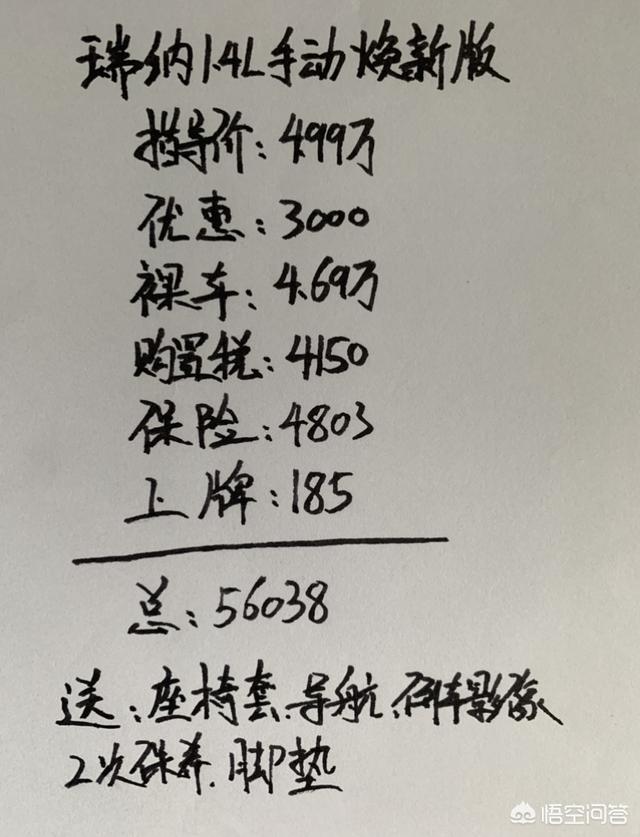 瑞纳1.4L手动焕新版
指导价:4.99万
优惠:3000
裸车:4.69万
购置税:4150
保险:4803
上牌:185
总:56038
送:座椅套、导航、倒车影像
2次保养、脚垫
悟空问答